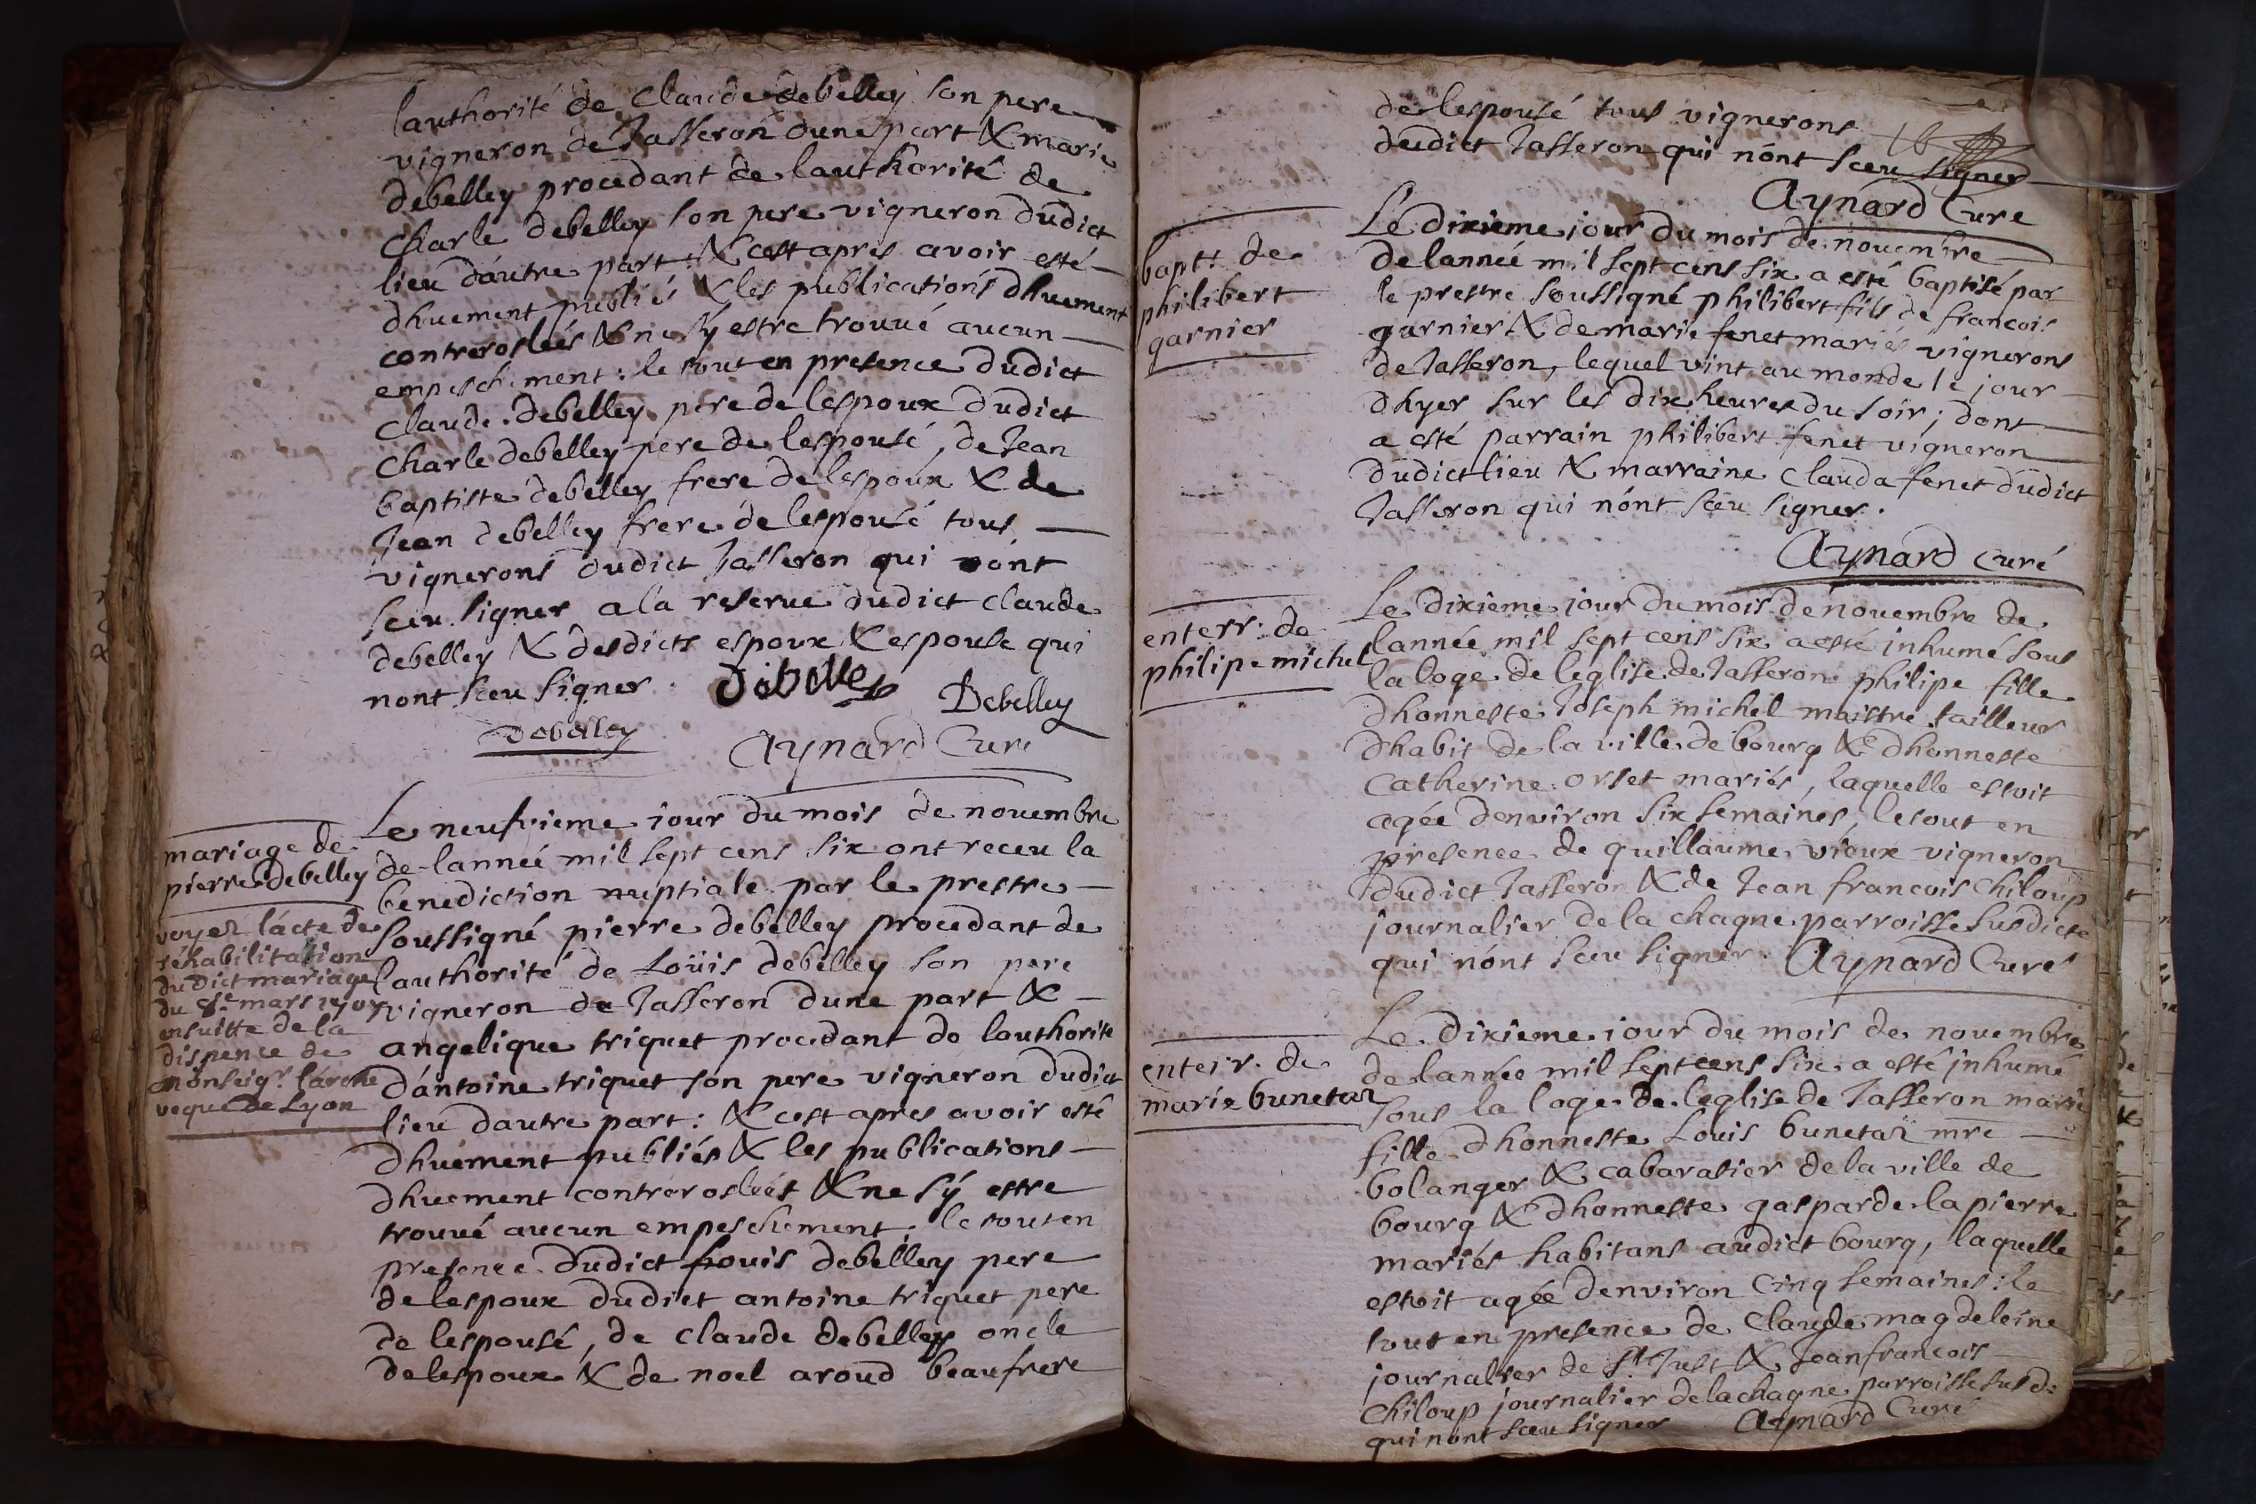 lauthorité de Claude debelley son pere
vigneron de Jasseron dune part & marie
debelley procedant de lauthorité de
Charle debelley son pere vigneron dudict
lieu dáutre part : & cest apres avoir esté
dhuement publiés & les publications dhuement
controroslées & ne sÿ estre trouué aucun
empeschement : le tout en presence dudict
Claude debelley pere de lespoux dudict
Charle debelley pere de lespousé, de Jean
baptiste debelley frere de lespoux & de
Jean debelley frere de lespousé tous
vignerons dudict Jasseron qui nónt
sceu signer a la reserue dudict claude
debelley & desdicts espoux & espouse qui
nont sceu signer . Debelley
Debelley
Debelley
Aynard Curé
mariage de
pierre debelley
voyez lácte de
réhabilitation
du dict mariage
du 8e mars 1707
ensuitte de la
dispence de
monseigr lárche
veque de Lyon
Le neufvieme iour du mois de nouembre
de lanneé mil sept cens six ont receu la
benediction nuptiale par le prestre
soussigné pierre debelley procedant de
lauthorité de Loüis debelley son pere
vigneron de Jasseron dune part &
angelique triquet procedant de lauthorité
dántoine triquet son pere vigneron dudict
lieu dautre part : & cest apres avoir esté
dhuement publiés & les publications
dhuement controroslées & ne sÿ estre
trouué aucun empeschement, le tout en
presence dudict Louis debelley pere
de lespoux dudict antoine triquet pere
de lespousé, de claude debelley oncle
de lespoux & de noel aroud beaufrere
de lespousé tous vignerons
dudict Jasseron qui nónt sceu signer
Aynard Cure
bapt: de
philibert
garnier
Le dixieme iour du mois de nouembre
de lanneé mil sept cens six a esté baptisé par
le prestre soussigné philibert fils de francois
garnier & de marie fenet mariés vignerons
de Jasseron, lequel vint au monde le jour
dhyer sur les dix heures du soir ; dont
a esté parrain philibert fenet vigneron
dudict lieu & marraine Clauda fenet dudict
Jasseron qui nónt sceu signer.
Aynard curé
enterr: de
philipe michel
Le dixieme iour du mois de nouembre de
lannée mil sept cens six a esté inhumé sous
la loge de leglise de Jasseron philipe fille
dhonneste Joseph michel maistre tailleur
dhabit de la ville de bourg & dhonneste
Catherine orset mariés, laquelle estoit
agée denviron six semaines, le tout en
presence de guillaume vieux vigneron
dudict Jasseron & de Jean francois Chiloup
journalier de la chagne parroisse susdicte
qui nónt sceu signer. Aynard Curé
enterr. de
marie bunetar
Le dixieme iour du mois de nouembre
de lannée mil sept cens six a esté inhumé
sous la loge de leglise de Jasseron marie
fille dhonneste Louis bunetar mre
bolanger & cabaratier de la ville de
bourg & dhonneste gasparde lapierre
mariés habitans audict bourg, laquelle
estoit agée denviron cinq semaines : le
tout en presence de Claude magdeleine
journalier de st Just & Jean francois
Chiloup journalier de la chagne parroisse susd:
qui nont sceu signer Aynard Curé